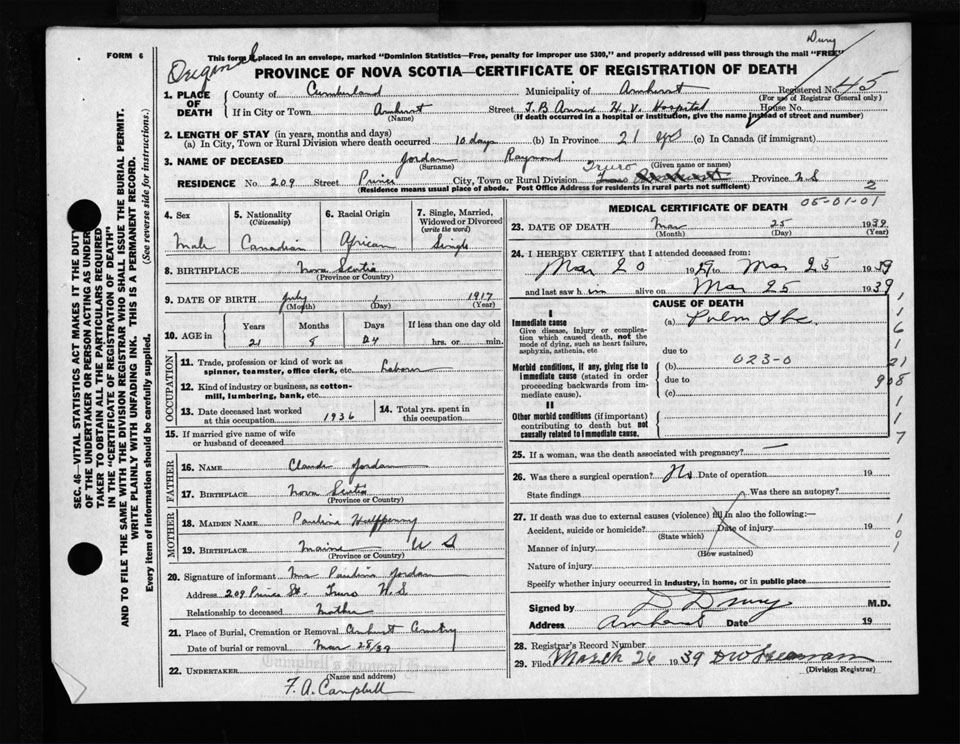 Dury
FORM 6
This form if placed in an envelope, marked "Dominion Statistics—Free, penalty for improper use $300," and properly addressed will pass through the mail "FREE"
Original
PROVINCE OF NOVA SCOTIA—CERTIFICATE OF REGISTRATION OF DEATH
1. PLACE OF DEATH
County of Cumberland Municipality of Amherst Registered No. 45
(For use of Registrar General only)
If in City or Town Amherst Street T.B Annex H.V. Hospital House No.
(Name) (If death occurred in a hospital or institution, give the name instead of street and number)
2. LENGTH OF STAY (in years, months and days)
(a) In City, Town or Rural Division where death occurred 10 days (b) In Province 21 yrs (c) In Canada (if immigrant)
3. NAME OF DECEASED Jordan Raymond
(Surname) (Given name or names)
RESIDENCE No. 209 Street Prince City, Town or Rural Division Truro Province N.S
(Residence means usual place of abode. Post Office Address for residents in rural parts not sufficient) 2
4. Sex
Male
5. Nationality
(Citizenship)
Canadian
6. Racial Origin
African
7. Single, Married, Widowed or Divorced
(write the word)
Single
8. BIRTHPLACE Nova Scotia
(Province or Country)
9. DATE OF BIRTH July 1 1917
(Month) (Day) (Year)
10. AGE in
Years Months Days If less than one day old
21 8 24 hrs. or min.
OCCUPATION
11. Trade, profession or kind of work as
spinner, teamster, office clerk, etc. Laborer
12. Kind of industry or business, as cotton-
mill, lumbering, bank, etc.
13. Date deceased last worked
at this occupation 1936
14. Total yrs. spent in
this occupation.
15. If married give name of wife
or husband of deceased
FATHER
16. NAME Claude Jordan
17. BIRTHPLACE Nova Scotia
(Province or Country)
MOTHER
18. MAIDEN NAME Paulina Halfpenny
19. BIRTHPLACE Maine U S
(Province or Country)
20. Signature of informant Mrs Paulina Jordan
Address 209 Prince St. Truro N.S.
Relationship to deceased Mother
21. Place of Burial, Cremation or Removal Amherst Cemetery
Date of burial or removal Mar 28/39
Campbell's Funeral Home
22. UNDERTAKER
(Name and address)
F. A. Campbell
MEDICAL CERTIFICATE OF DEATH
05-01-01
23. DATE OF DEATH Mar 25 1939
(Month) (Day) (Year)
24. I HEREBY CERTIFY that I attended deceased from:
Mar 20 1939 to Mar 25 1939
and last saw h im alive on Mar 25 1939
CAUSE OF DEATH
I
Immediate cause
Give disease, injury or complica-
tion which caused death, not the
mode of dying, such as heart failure,
asphyxia, asthenia, etc
(a) Pulm Tbc.
due to
Morbid conditions, if any, giving rise to
immediate cause (stated in order
proceeding backwards from im-
mediate cause).
(b) 023-0
due to
(c)
II
Other morbid conditions (if important)
contributing to death but not
causally related to immediate cause.
1
1
6
1
21
908
1
1
7
25. If a woman, was the death associated with pregnancy? —
26. Was there a surgical operation? No Date of operation 19
State findings Was there an autopsy?
27. If death was due to external causes (violence) fill in also the following:—
Accident, suicide or homicide? Date of injury 19
(State which)
Manner of injury
(How sustained)
Nature of injury
1
0
1
Specify whether injury occurred in industry, in home, or in public place
Signed by D Drury M.D.
Address Amherst Date 19
28. Registrar's Record Number
29. Filed March 26 1939
(Division Registrar)
SEC. 46—VITAL STATISTICS ACT MAKES IT THE DUTY
OF THE UNDERTAKER OR PERSON ACTING AS UNDER-
TAKER TO OBTAIN ALL THE PARTICULARS REQUIRED
IN THE "CERTIFICATE OF REGISTRATION OF DEATH"
AND TO FILE THE SAME WITH THE DIVISION REGISTRAR WHO SHALL ISSUE THE BURIAL PERMIT.
WRITE PLAINLY WITH UNFADING INK. THIS IS A PERMANENT RECORD.
Every item of information should be carefully supplied. (See reverse side for instructions.)